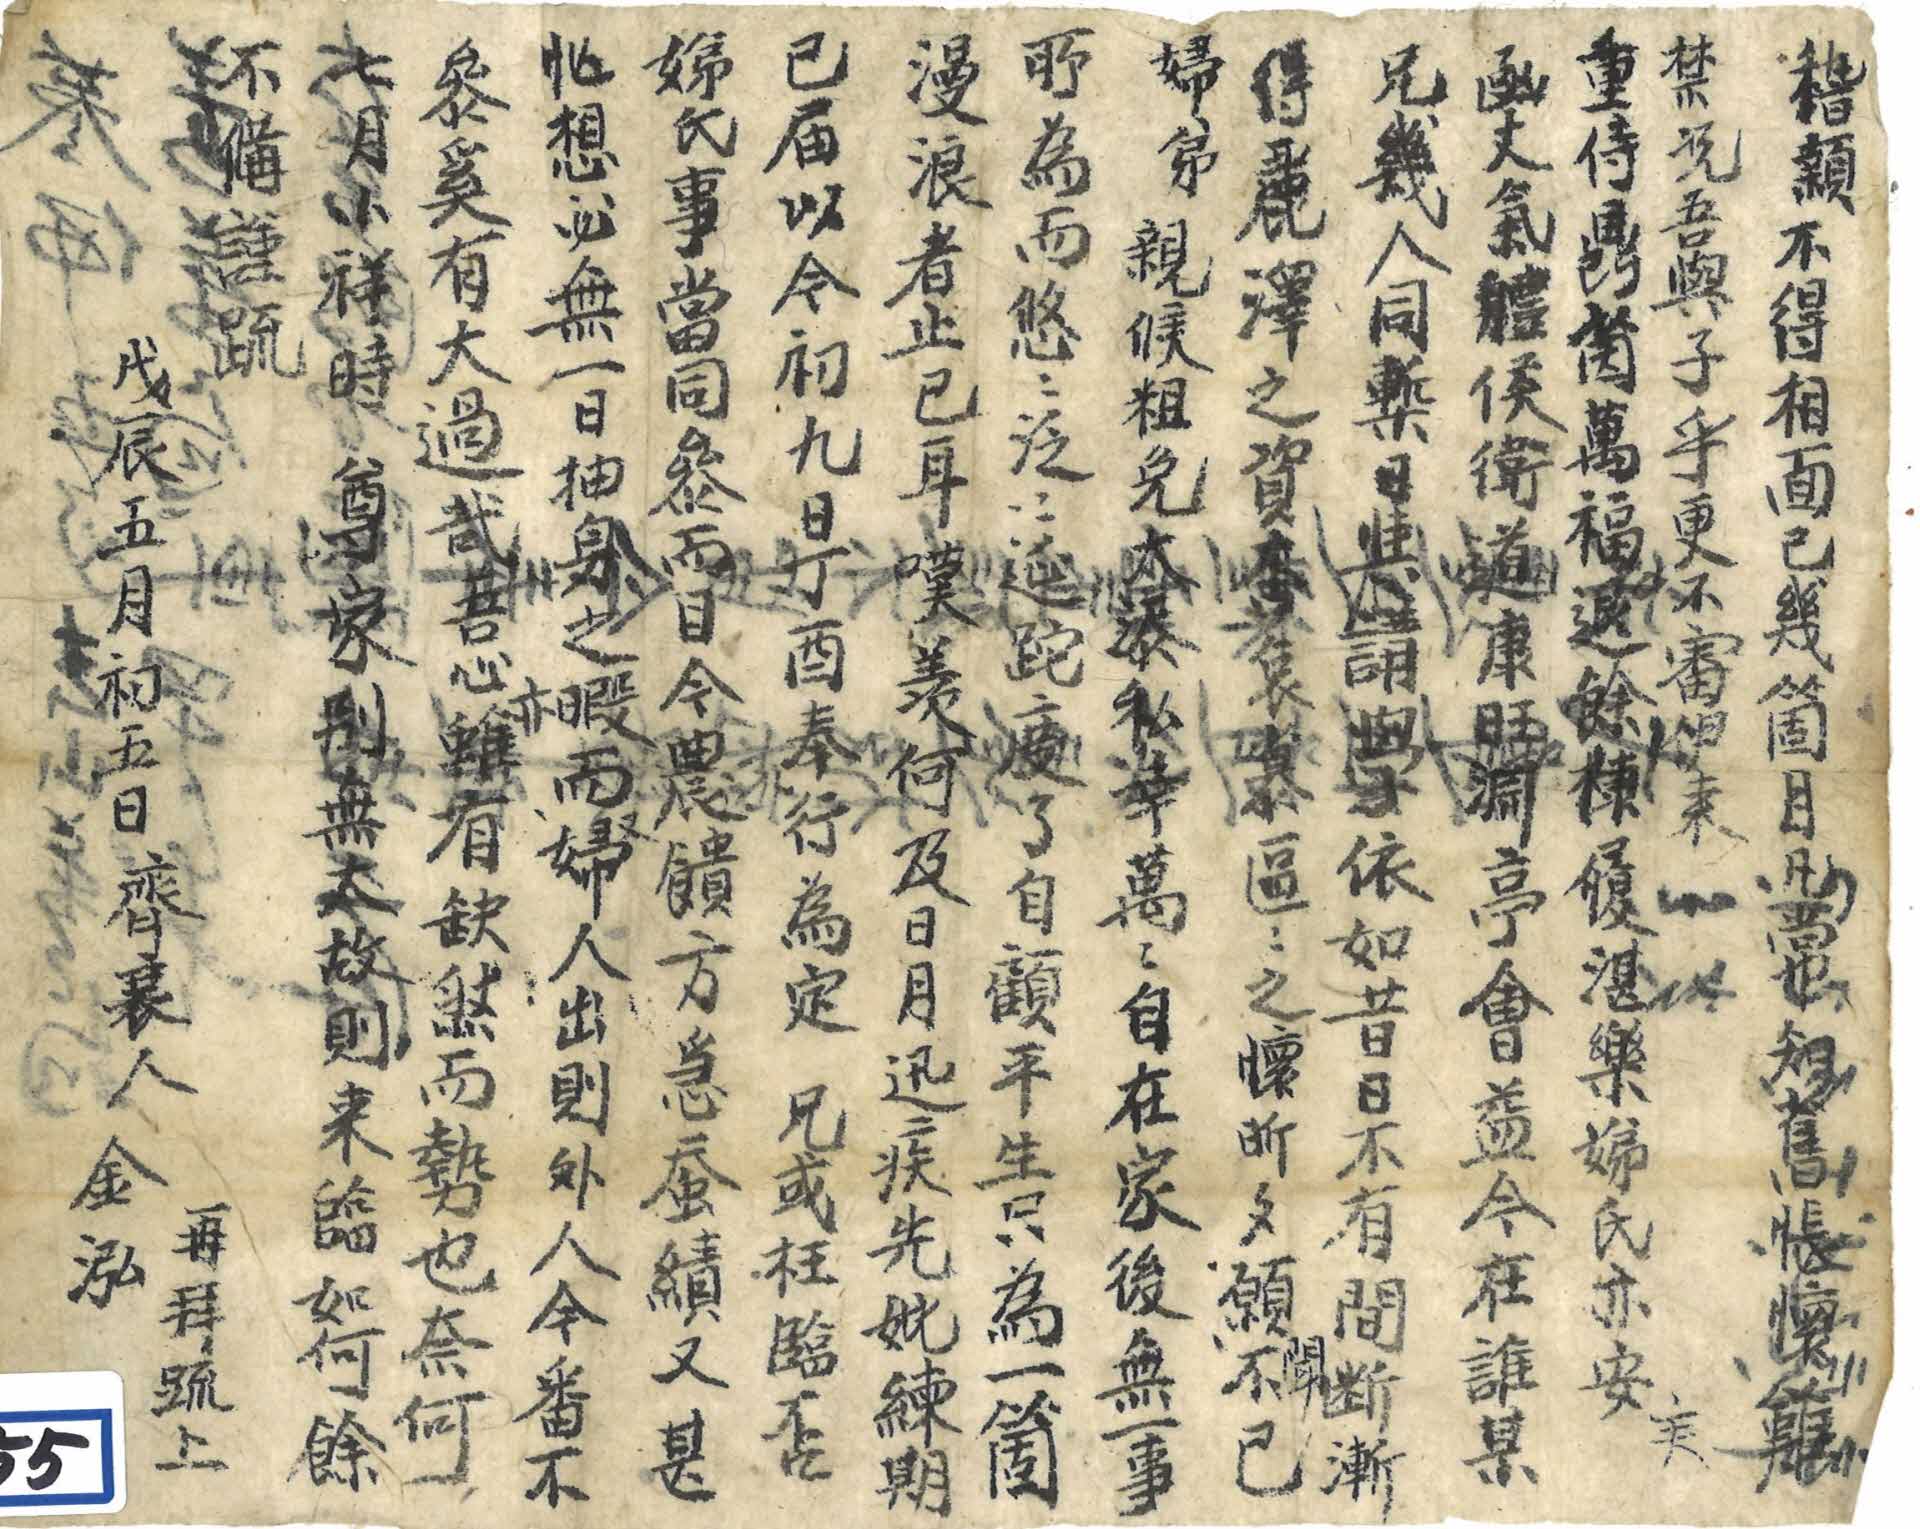 稽顙不得相面已幾箇月用嘗知舊悵懷雖
禁況吾與子乎更不審邇來
重侍鼎茵萬福退餘棣履湛樂娣氏亦安
函丈氣體候衛道康旺淵亭會益今在誰某
兄幾人同槧日講學依如昔日不有間斷漸
得麗澤之資否哀慕區〻之懷昕夕願聞不已
婦弟親候粗免太添私幸萬〻自在家後無一事
所為而悠〻泛〻逶跎度了自顧平生只為一箇
漫浪者止已耳嘆羨何及日月迅疾先妣練期
已届以今初九日丁酉奉行為定兄或枉臨否
娣氏事當同參而目今農饋方急蚕績又甚
忙想必無一日抽身之暇而婦人出則外人今番不
亦
參奚有大過哉吾心雖有缺然而勢也奈何
七月小祥時尊家別無大故則来臨如何餘
不備謹疏
戊辰五月初五日齊衰人金泓
再拜疏上
55